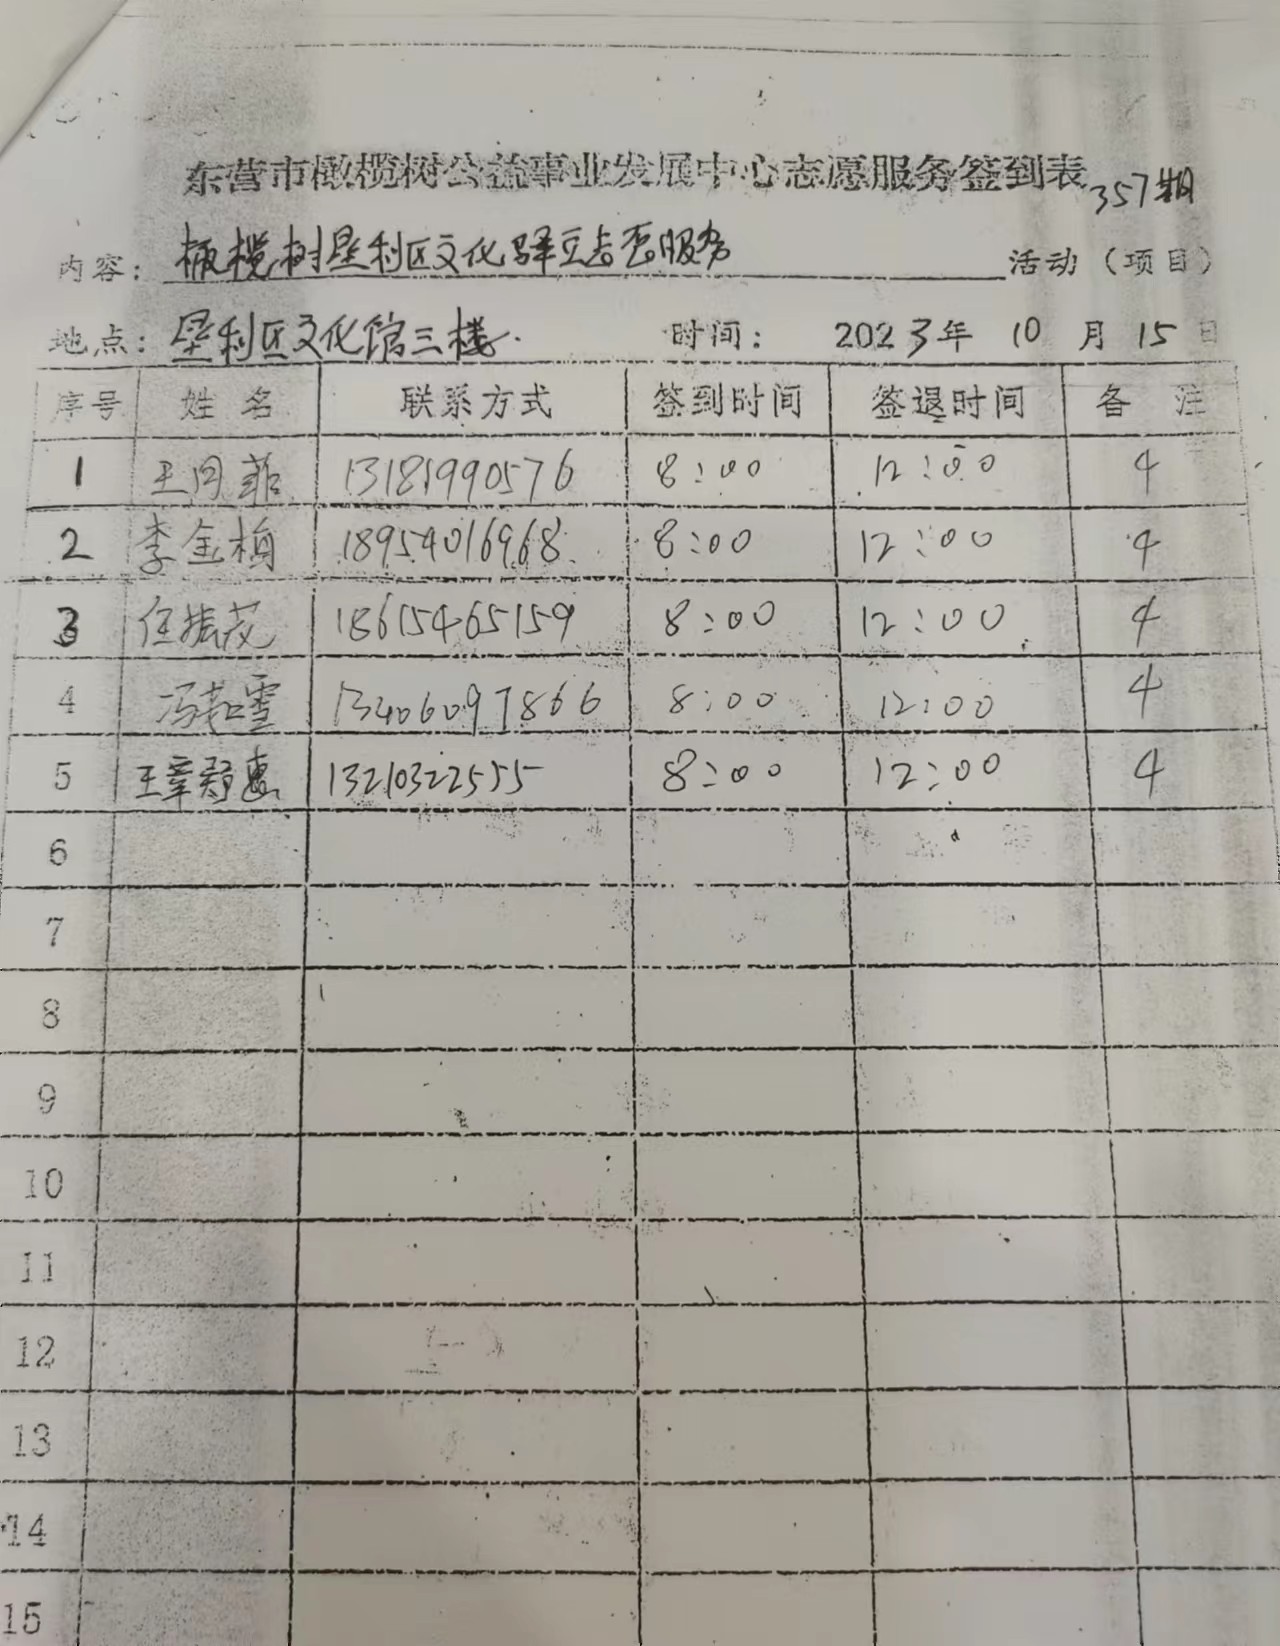 东营市橄榄树公益事业发展中心志愿服务签到表 357期
内容: 橄榄树垦利区文化驿站志愿服务 活动（项目）
地点: 垦利区文化馆三楼. 时间: 2023年 10 月 15 日
序号 姓 名 联系方式 签到时间 签退时间 备 注
1 王月菲 13181990576 8:00 12:00 4
2 李金梅 18954016968 8:00 12:00 4
3 任振花 18615465159 8:00 12:00 4
4 冯茹雪 13406097866 8:00 12:00 4
5 王章 惠 13210322555 8:00 12:00 4
6
7
8
9
10
11
12
13
14
15